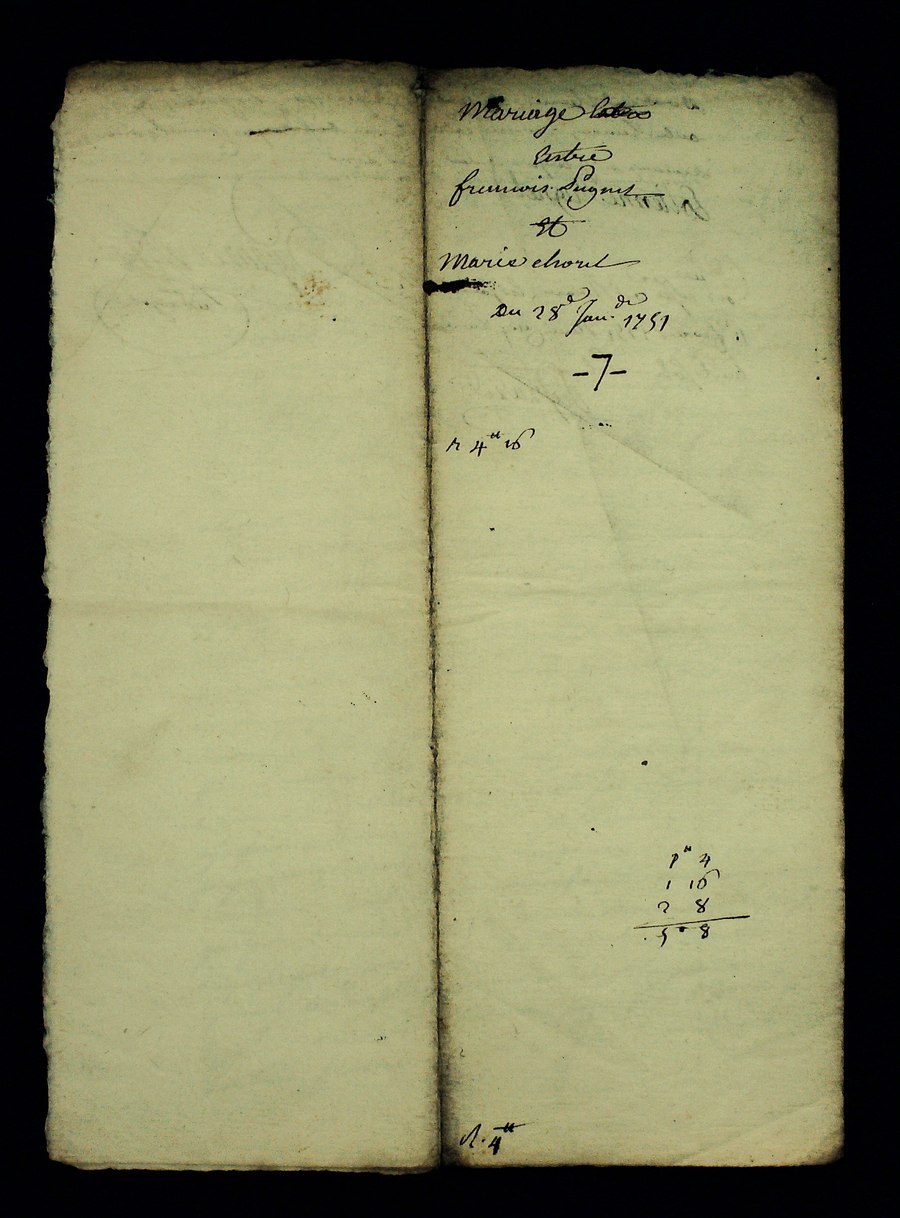 Mariage
Entre
francois Pugnet
Et
Marie chout
Du 28e Janr. de 1751
-7-
R 4tt 16
1tt 4
1 16
2 8
5 8
R. 4tt